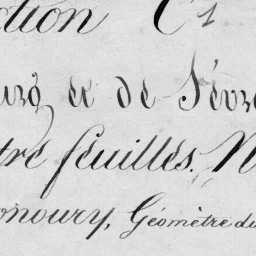 ction C 1
urg et de Sévr
tre feuilles. N
onoury, Géomètre du